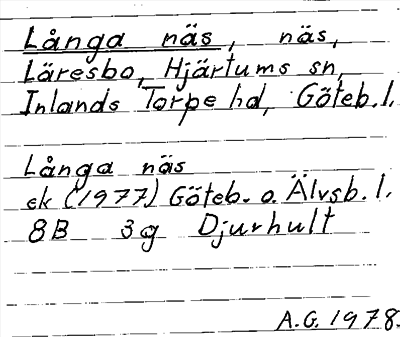 Långa näs, näs,
Läresbo, Hjärtums sn,
Inlands Torpe hd, Göteb. l.
Långa näs
ek (1977) Göteb. o. Älvsb. l.
8B 3g Djurhult
A.G. 1978.